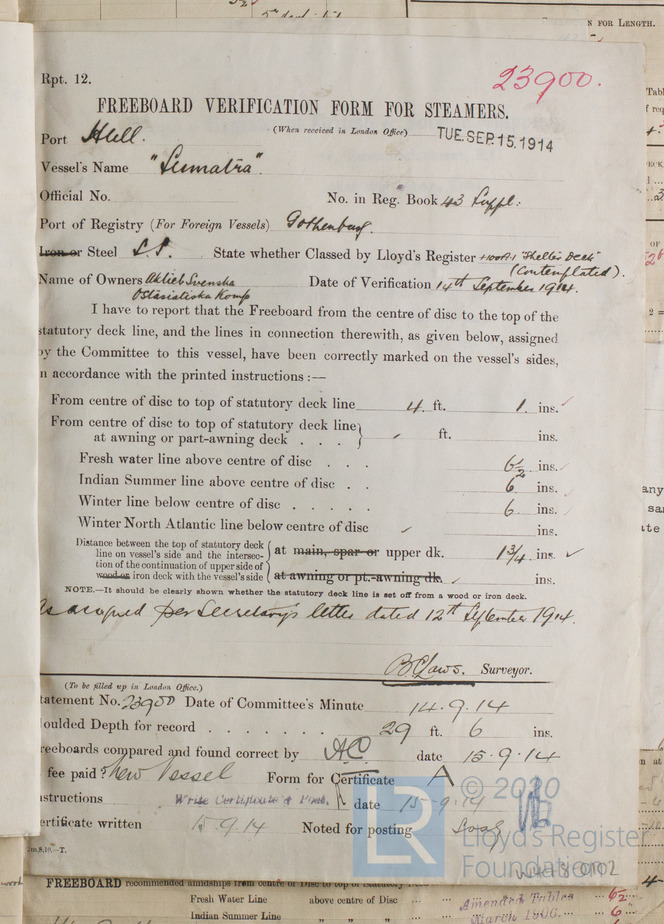 N FOR LENGTH.
Rpt. 12.
23900.
FREEBOARD VERIFICATION FORM FOR STEAMERS.
(When received in London Office) TUE. SEP. 15. 1914
Port Hull.
Vessel's Name "Sumatra".
Official No. No. in Reg. Book 43 Suppl:
Port of Registry (For Foreign Vessels) Gothenburg.
Iron or Steel S.S. State whether Classed by Lloyd's Register +100A1 "Shelter Deck"
(Contemplated).
Name of Owners Aktieb Svenska Date of Verification 14th September 1914.
Ostasiatiska Komp
I have to report that the Freeboard from the centre of disc to the top of the
statutory deck line, and the lines in connection therewith, as given below, assigned
by the Committee to this vessel, have been correctly marked on the vessel's sides,
n accordance with the printed instructions :—
From centre of disc to top of statutory deck line 4 ft. 1 ins.
From centre of disc to top of statutory deck line
at awning or part-awning deck . . . ft. ins.
Fresh water line above centre of disc . . . 6½ ins.
Indian Summer line above centre of disc . . 6 ins.
Winter line below centre of disc . . . . . 6 ins.
Winter North Atlantic line below centre of disc ins.
Distance between the top of statutory deck
line on vessel's side and the intersec-
tion of the continuation of upper side of
wood or iron deck with the vessel's side
at main, spar or upper dk. 1¾ ins.
at awning or pt.-awning dk. ins.
NOTE.—It should be clearly shown whether the statutory deck line is set off from a wood or iron deck.
As assigned per Secretary's letter dated 12th September 1914.
B C Laws. Surveyor.
(To be filled up in London Office.)
tatement No. 23900 Date of Committee's Minute 14.9.14
oulded Depth for record . . . . . . . 29 ft. 6 ins.
reeboards compared and found correct by AC date 15.9.14
fee paid? New Vessel Form for Certificate A
structions Write Certificate & Post. date 15-9-14
ertificate written 15.9.14 Noted for posting
2m,8,10.—T.
© 2020
Lloyd's Register
Foundation
LR
W48-0092
FREEBOARD recommended amidships from centre of Disc to top of Statutory
Fresh Water Line above centre of Disc
Indian Summer Line " " "
Amended Tables
March 1906.